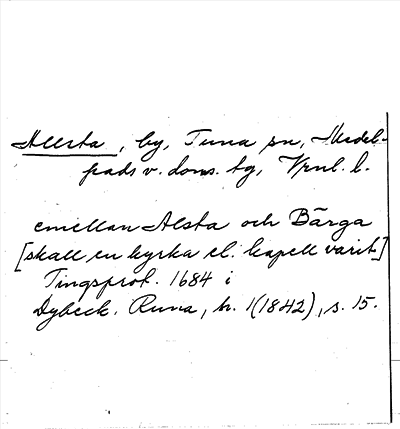 Allsta, by, Tuna sn, Medel-
pads v. doms. tg, Vnl. l.
emellan Alsta och Bärga
[skall en kyrka el. kapell varit]
Tingsprot. 1684 i
Dybeck. Runa, h. 1(1842), s. 15.